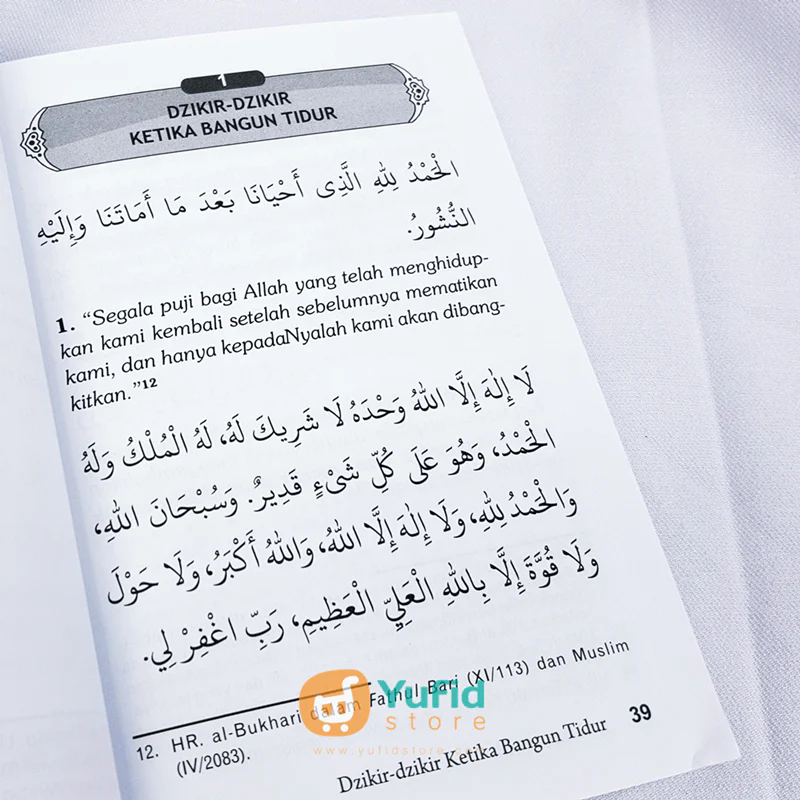 1
DZIKIR-DZIKIR
KETIKA BANGUN TIDUR
الْحَمْدُ لِلّٰهِ الَّذِى أَحْيَانَا بَعْدَ مَا أَمَاتَنَا وَإِلَيْهِ
النُّشُورُ.
1. “Segala puji bagi Allah yang telah menghidup-
kan kami kembali setelah sebelumnya mematikan
kami, dan hanya kepadaNyalah kami akan dibang-
kitkan.”12
لَا إِلٰهَ إِلَّا اللّٰهُ وَحْدَهُ لَا شَرِيكَ لَهُ، لَهُ الْمُلْكُ وَلَهُ
الْحَمْدُ، وَهُوَ عَلَى كُلِّ شَىْءٍ قَدِيرٌ. وَسُبْحَانَ اللّٰهِ،
وَالْحَمْدُ لِلّٰهِ، وَلَا إِلٰهَ إِلَّا اللّٰهُ، وَاللّٰهُ أَكْبَرُ، وَلَا حَوْلَ
وَلَا قُوَّةَ إِلَّا بِاللّٰهِ الْعَلِيِّ الْعَظِيمِ، رَبِّ اغْفِرْ لِي.
12. HR. al-Bukhari dalam Fathul Bari (XI/113) dan Muslim
(IV/2083).
Dzikir-dzikir Ketika Bangun Tidur 39
Yufid
store
www.yufidstore.com